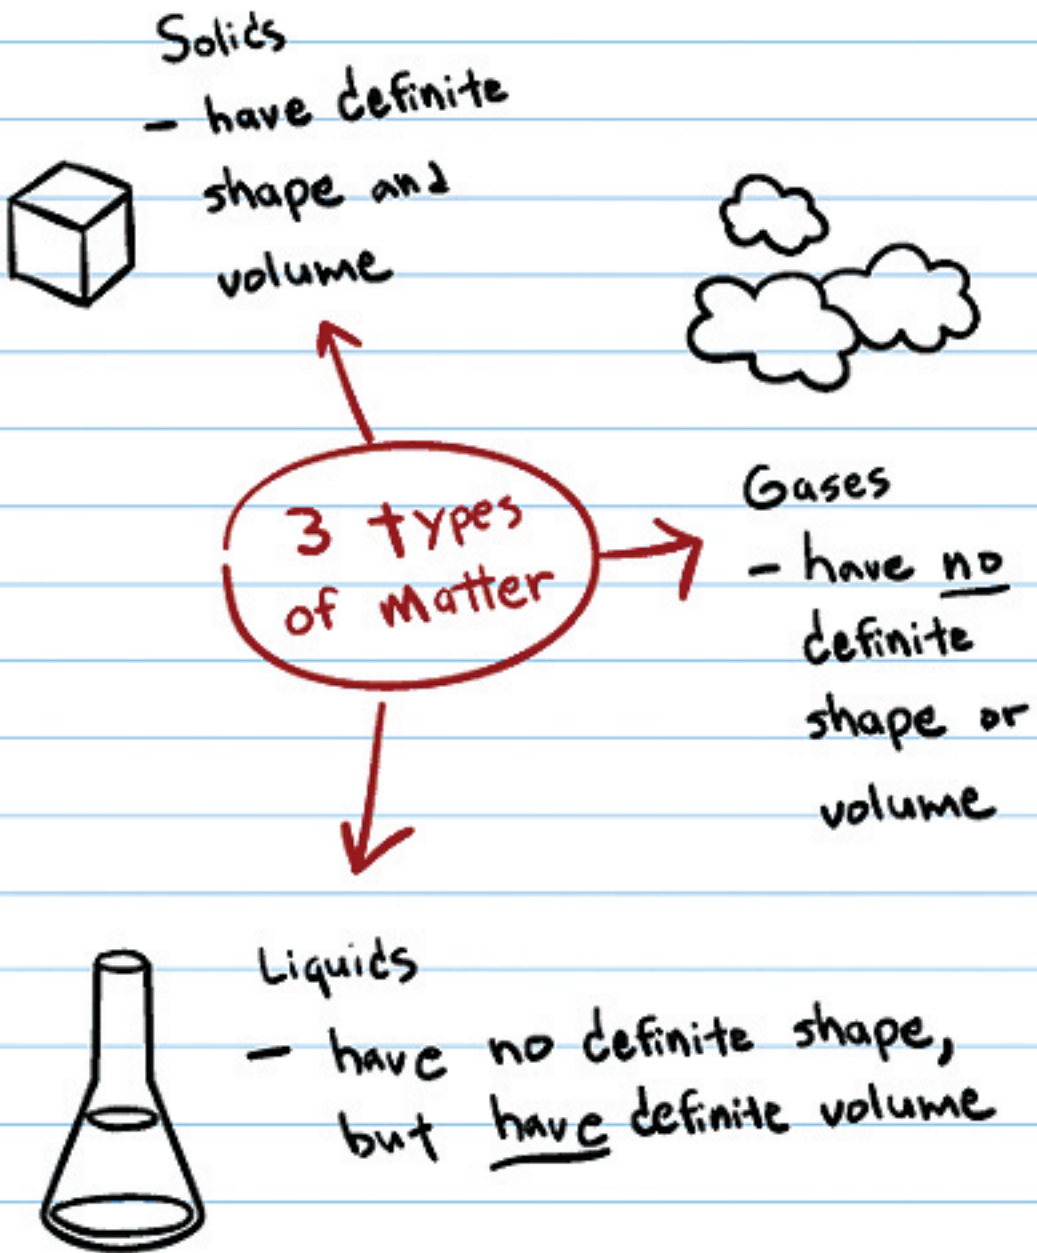 Solids
- have definite
shape and
volume
3 types
of matter
Gases
- have no
definite
shape or
volume
Liquids
- have no definite shape,
but have definite volume